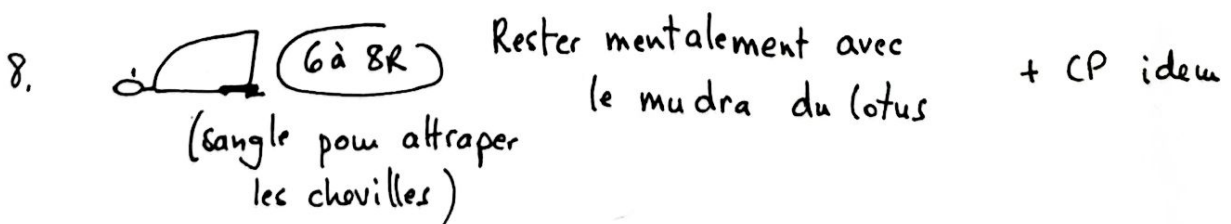 8. 6 à 8R Rester mentalement avec + CP idem
le mudra du lotus
(sangle pour attraper
les chevilles)